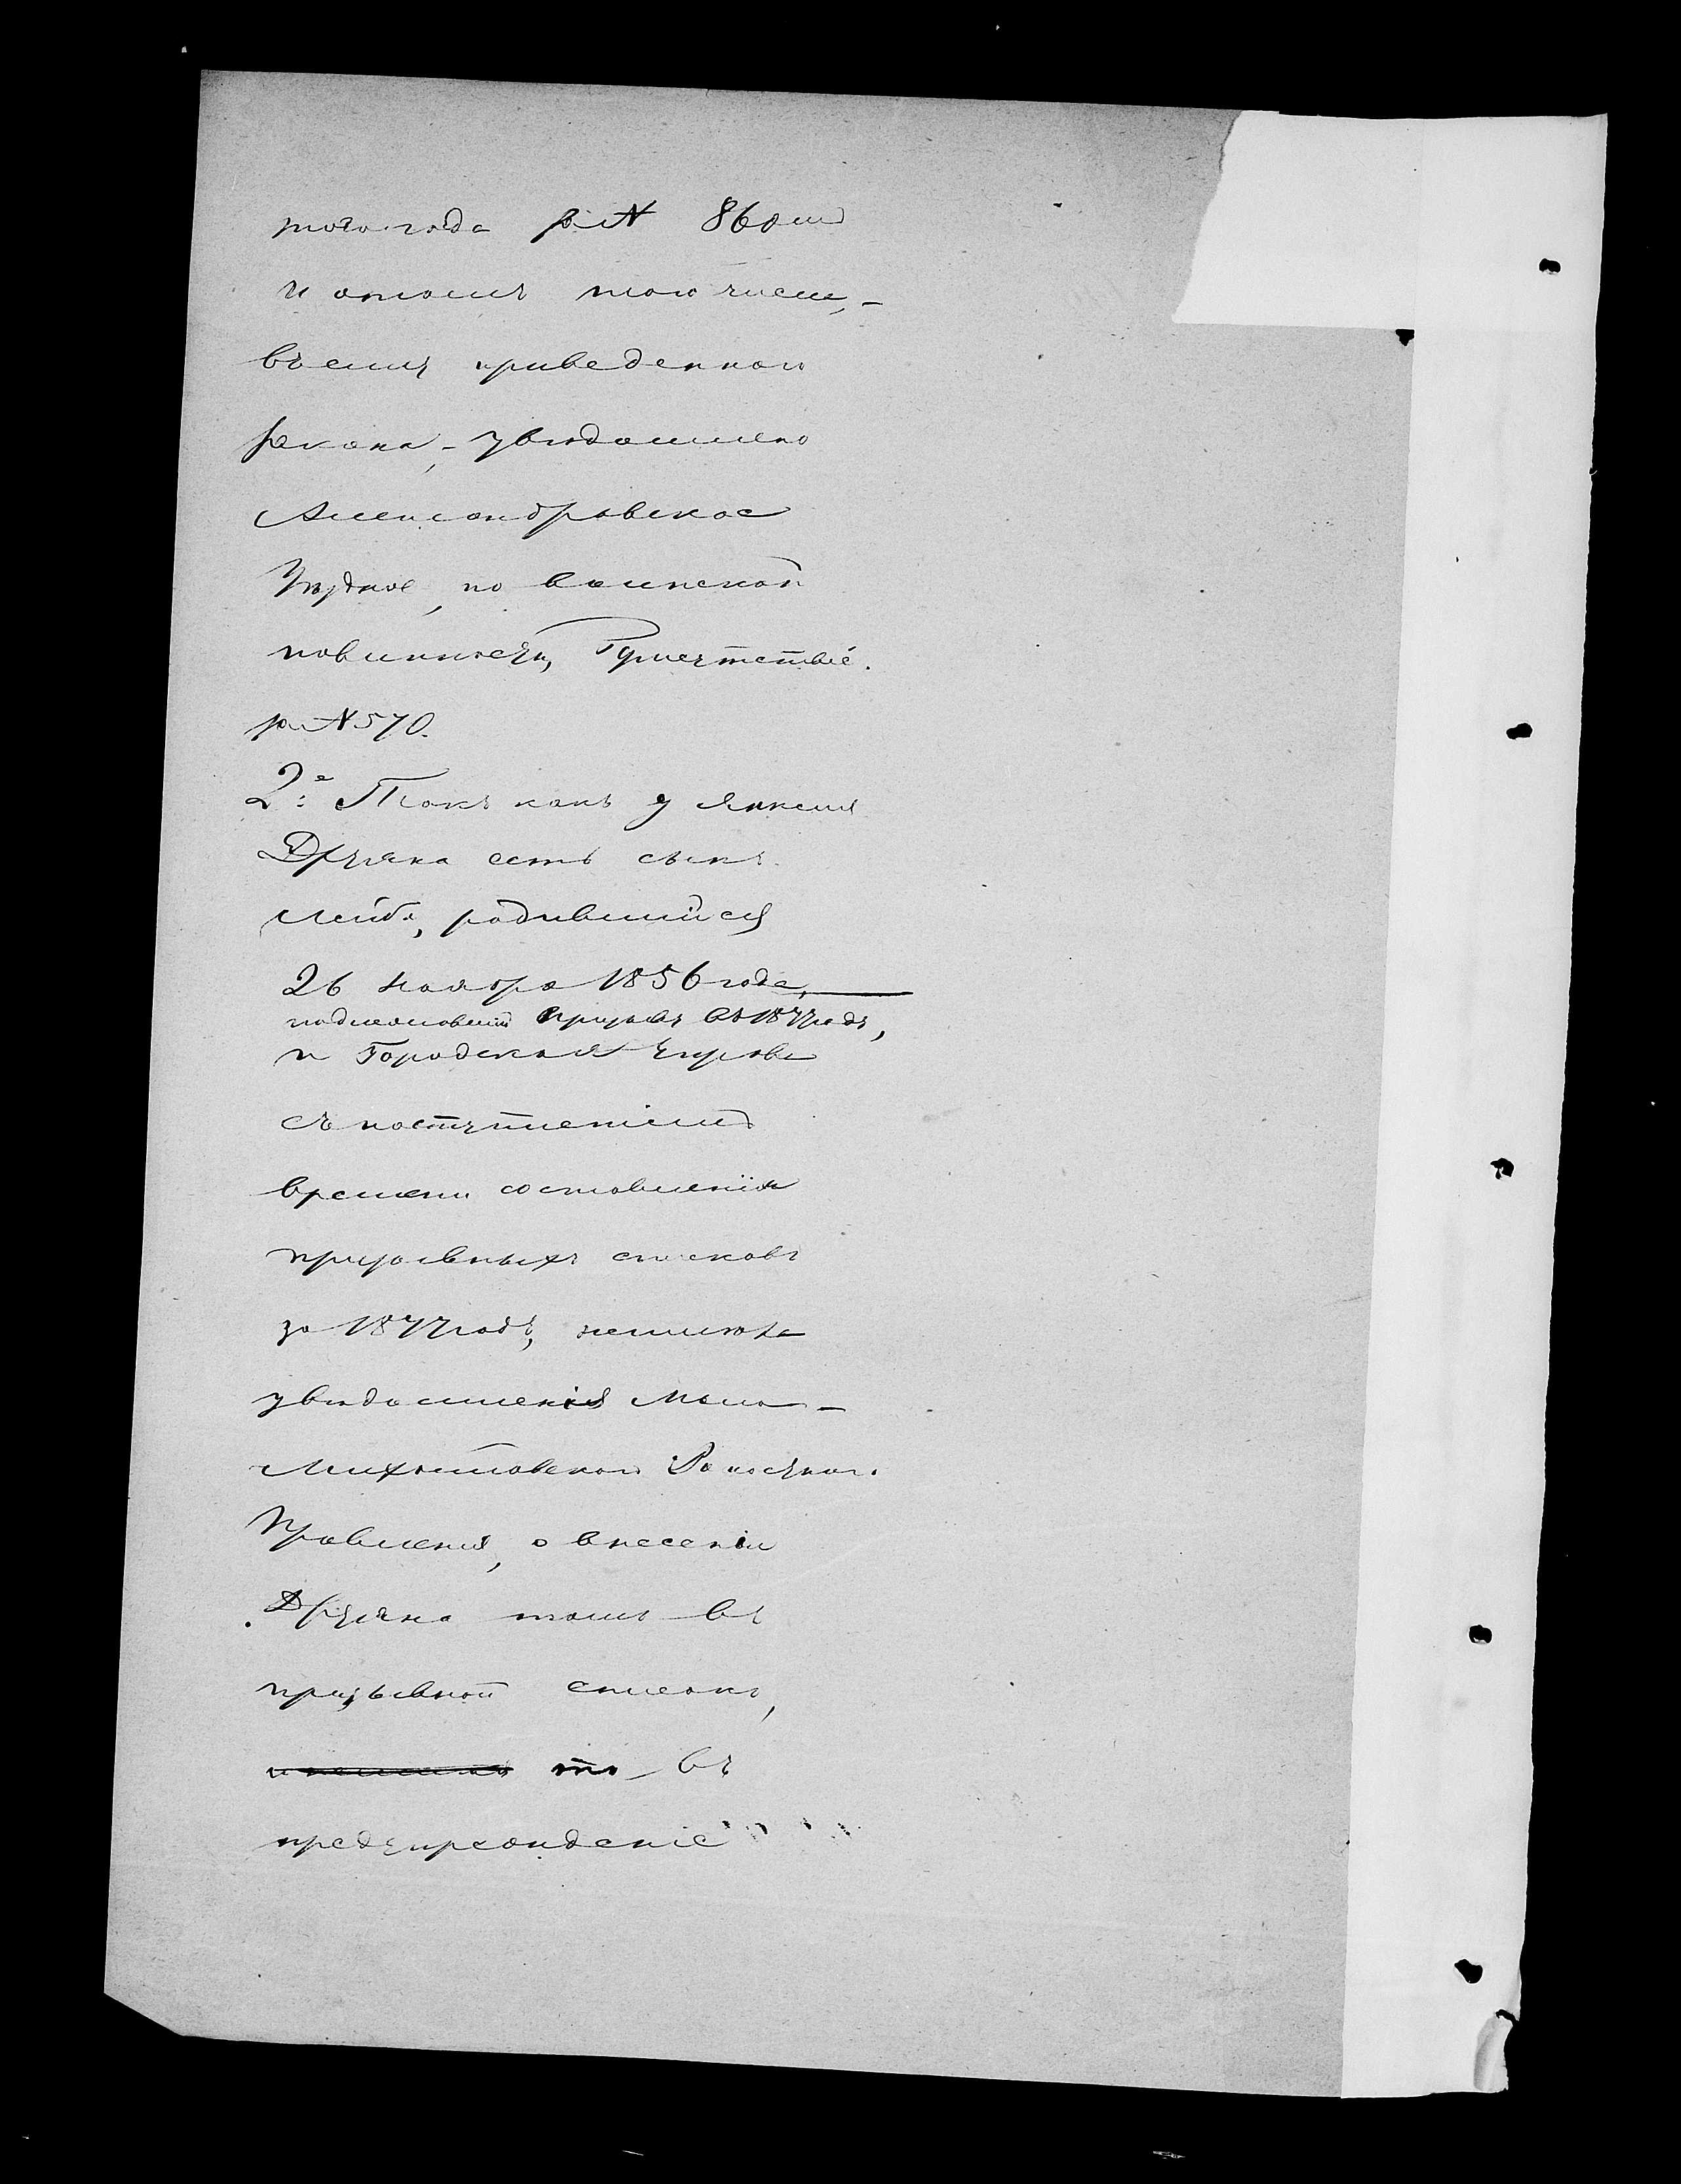 того года за № 860 мъ
и отомъ того числа, -
въ силу приведеннаго
закона, - увѣдомлено
Александровское
Уѣздное, по воинской
повинности, Присутствіе.
за № 570.
2е: Такъ какъ у Янкеля
Друяна есть сынъ
Лейба, родившійся
26 ноября 1856 года,
подлежавшій призыву въ 1877 годъ,
и Городская Управа
съ наступленіемъ
времени составленія
призывныхъ списковъ
за 1877 годъ, неимѣла
увѣдомленія Мало-
Михайловскаго Волостнаго
Правленія, о внесеніи
Друяна тамъ въ
призывной списокъ,
то въ
предупрежденіе